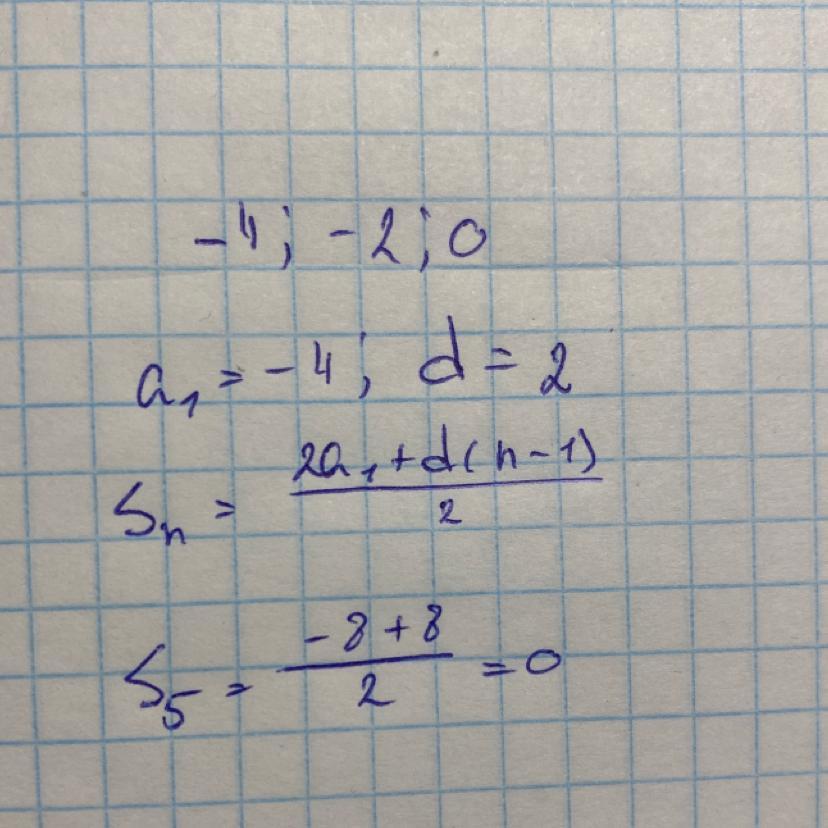 -4; -2; 0
a₁ = -4; d = 2
Sₙ = (2a₁ + d(n - 1))/2
S₅ = (-8 + 8)/2 = 0